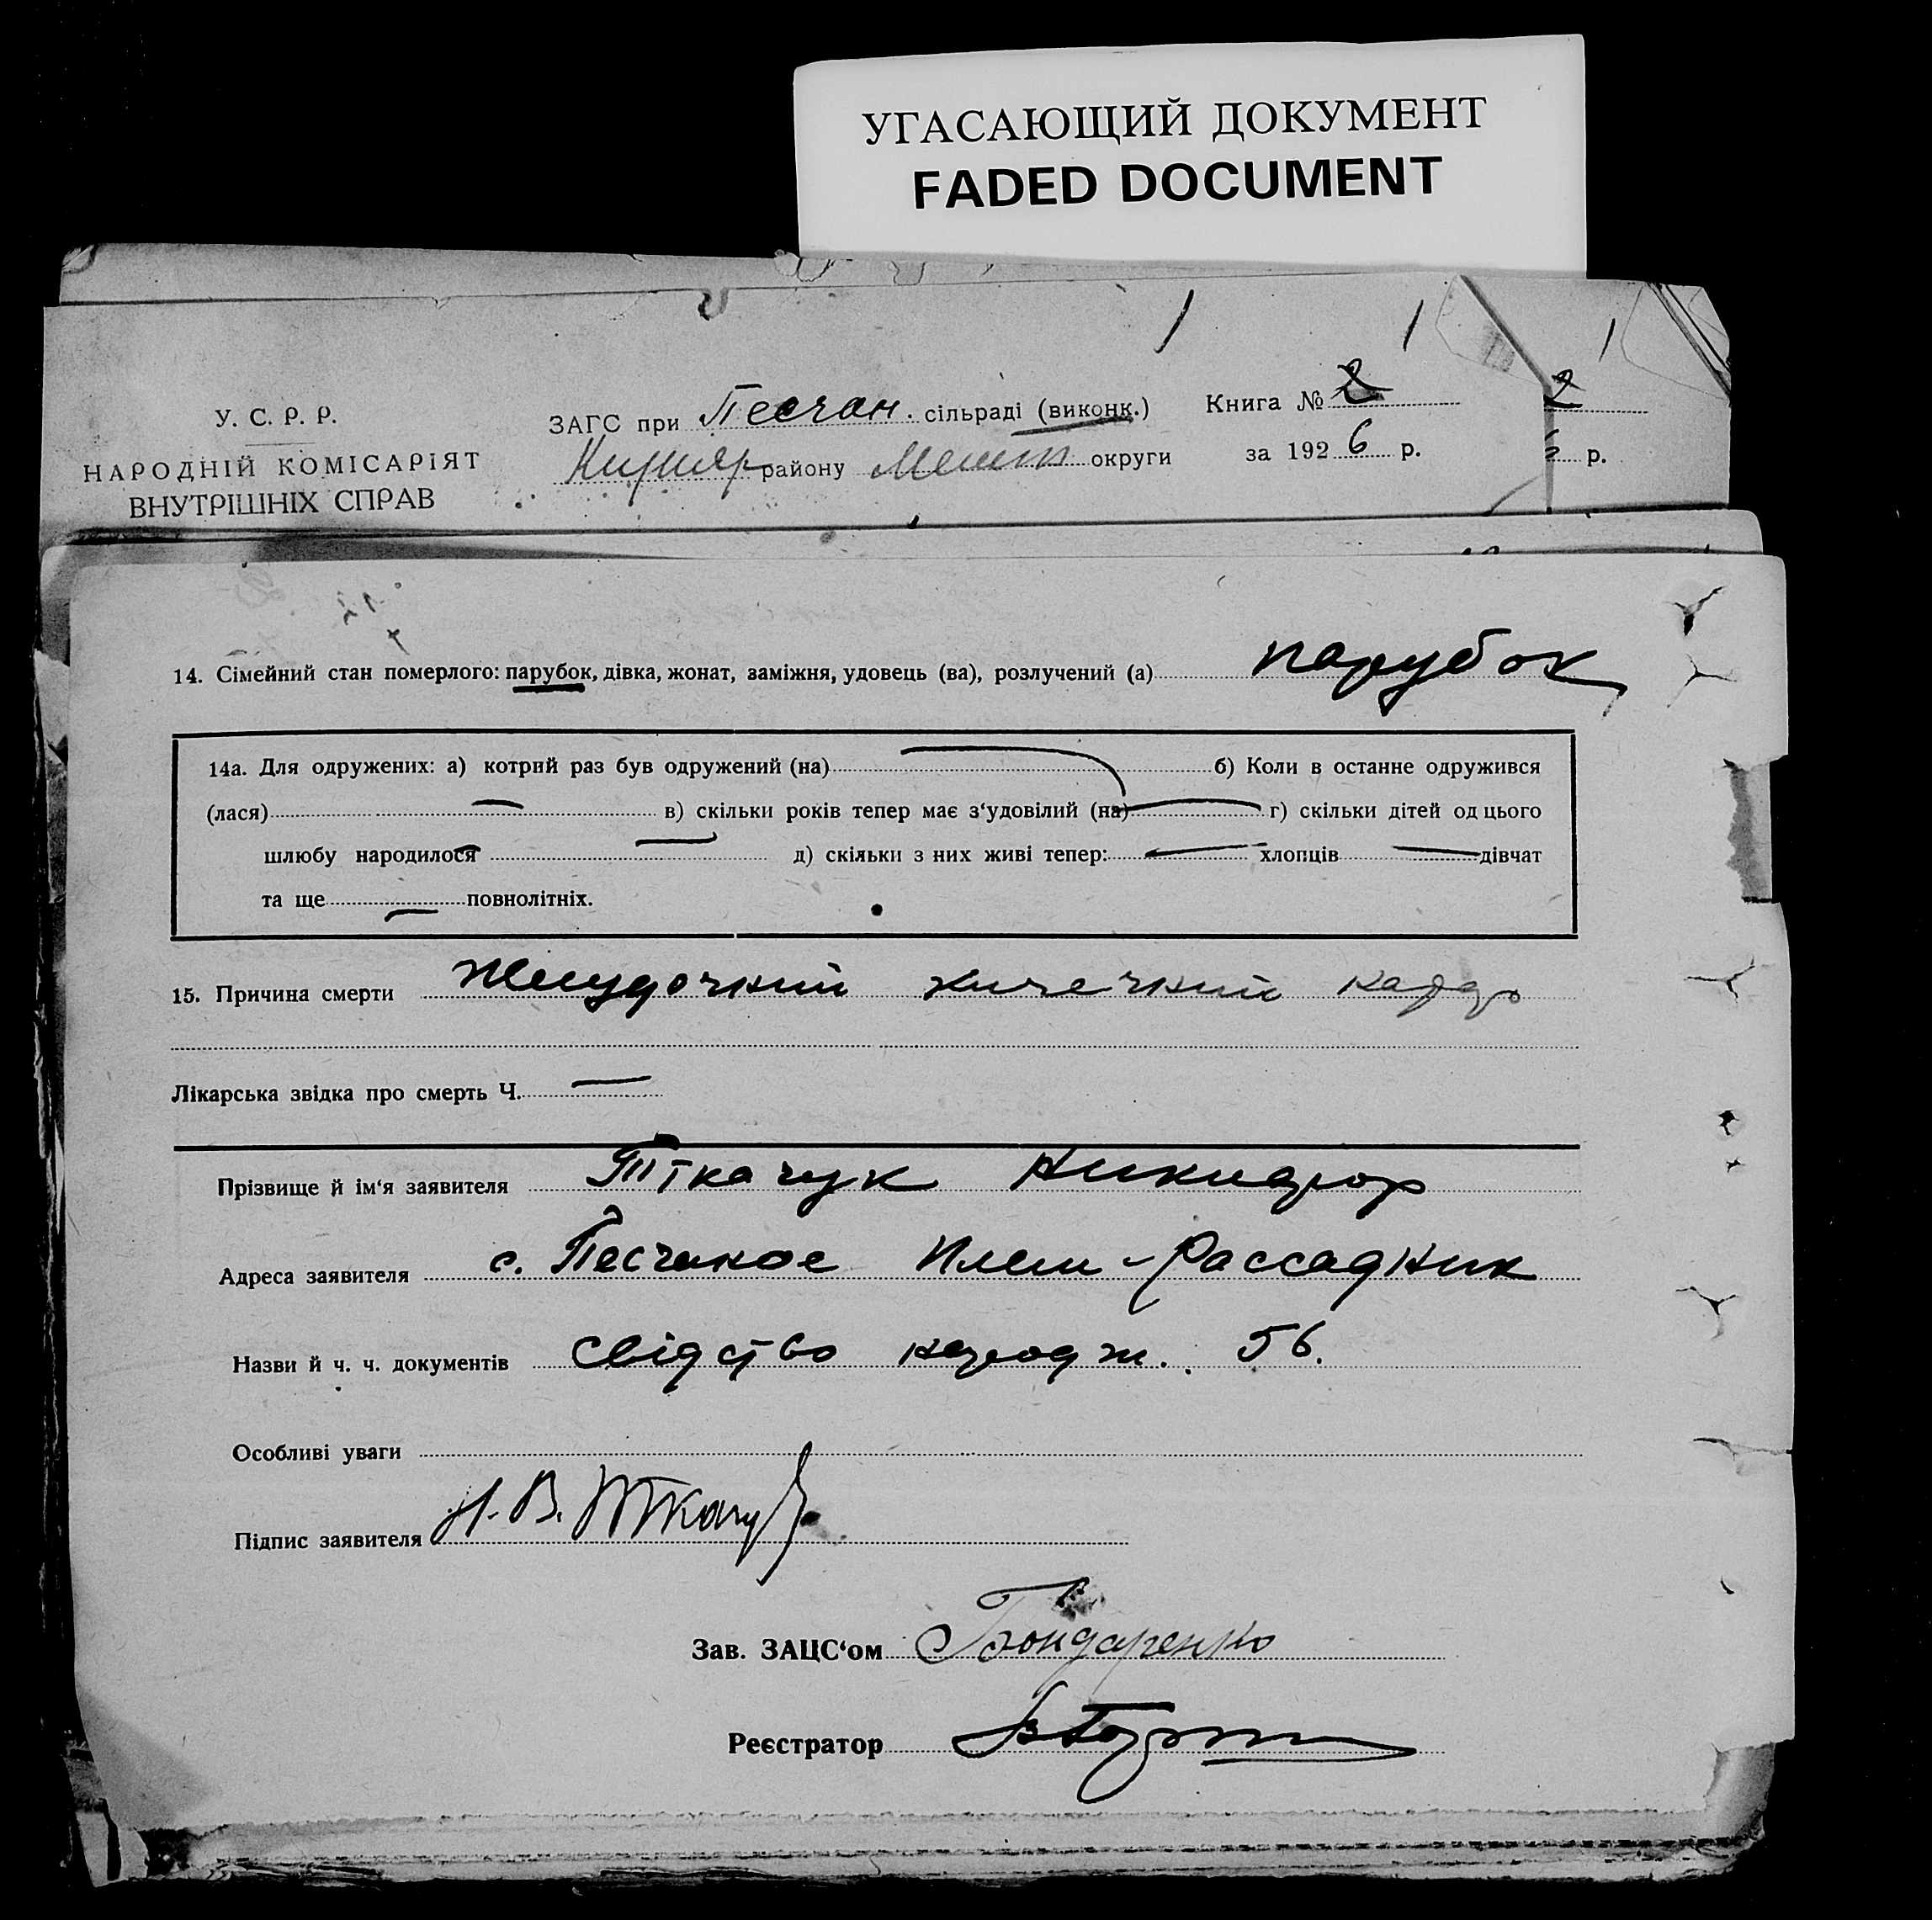 УГАСАЮЩИЙ ДОКУМЕНТ
FADED DOCUMENT
У. С. Р. Р.
НАРОДНІЙ КОМІСАРІЯТ
ВНУТРІШНІХ СПРАВ
ЗАГС при Песчан. сільраді (виконк.)
району Мелит округи
Книга № 2
за 1926 р.
2
6 р.
14. Сімейний стан померлого: парубок, дівка, жонат, заміжня, удовець (ва), розлучений (а) парубок
14а. Для одружених: а) котрий раз був одружений (на) б) Коли в останне одружився
(лася) в) скільки років тепер має з‘удовілий (на) г) скільки дітей од цього
шлюбу народилося д) скільки з них живі тепер: хлопців дівчат
та ще повнолітніх.
15. Причина смерти Желудочний кичечний
Лікарська звідка про смерть Ч.
Прізвище й ім‘я заявителя Ткачук Никифор
Адреса заявителя с. Песчаное Плем-Рассадник
Назви й ч. ч. документів свідство народж. 56.
Особливі уваги
Підпис заявителя Н. В. Ткачук
Зав. ЗАЦС‘ом Бондаренко
Реєстратор